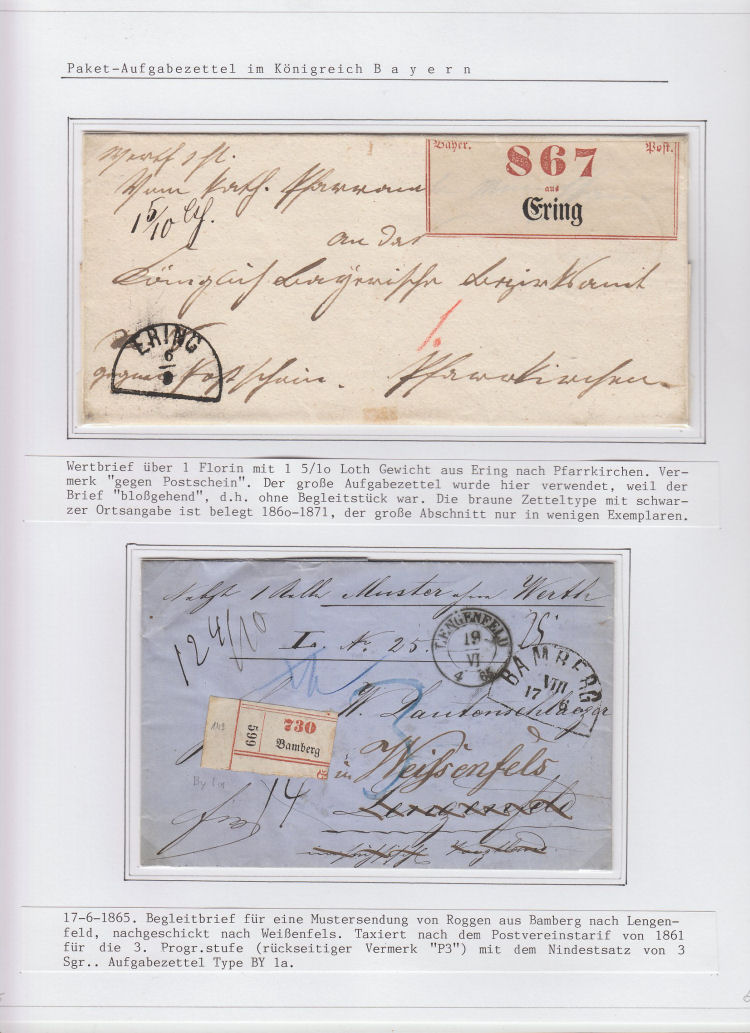 Paket-Aufgabezettel im Königreich B a y e r n
Bayer. 867 Post.
aus
Ering
Werth 1 fl.
Vom kath. Pfarramt
1 5/10 Lth.
an das
Königlich Bayerische Bezirksamt
1.
ERING
6
9
gegen Postschein. Pfarrkirchen.
Wertbrief über 1 Florin mit 1 5/1o Loth Gewicht aus Ering nach Pfarrkirchen. Ver-
merk "gegen Postschein". Der große Aufgabezettel wurde hier verwendet, weil der
Brief "bloßgehend", d.h. ohne Begleitstück war. Die braune Zetteltype mit schwar-
zer Ortsangabe ist belegt 186o-1871, der große Abschnitt nur in wenigen Exemplaren.
Nebst 1 Rolle Muster ohne Werth
L. Nr. 25.
12 4/10
LENGENFELD
19
VI
4 65
BAMBERG
VIII
17 6
W. Lautenschlager
149
599
730
Bamberg
By 1a
3
in Weissenfels
14
17-6-1865. Begleitbrief für eine Mustersendung von Roggen aus Bamberg nach Lengen-
feld, nachgeschickt nach Weißenfels. Taxiert nach dem Postvereinstarif von 1861
für die 3. Progr.stufe (rückseitiger Vermerk "P3") mit dem Nindestsatz von 3
Sgr.. Aufgabezettel Type BY 1a.